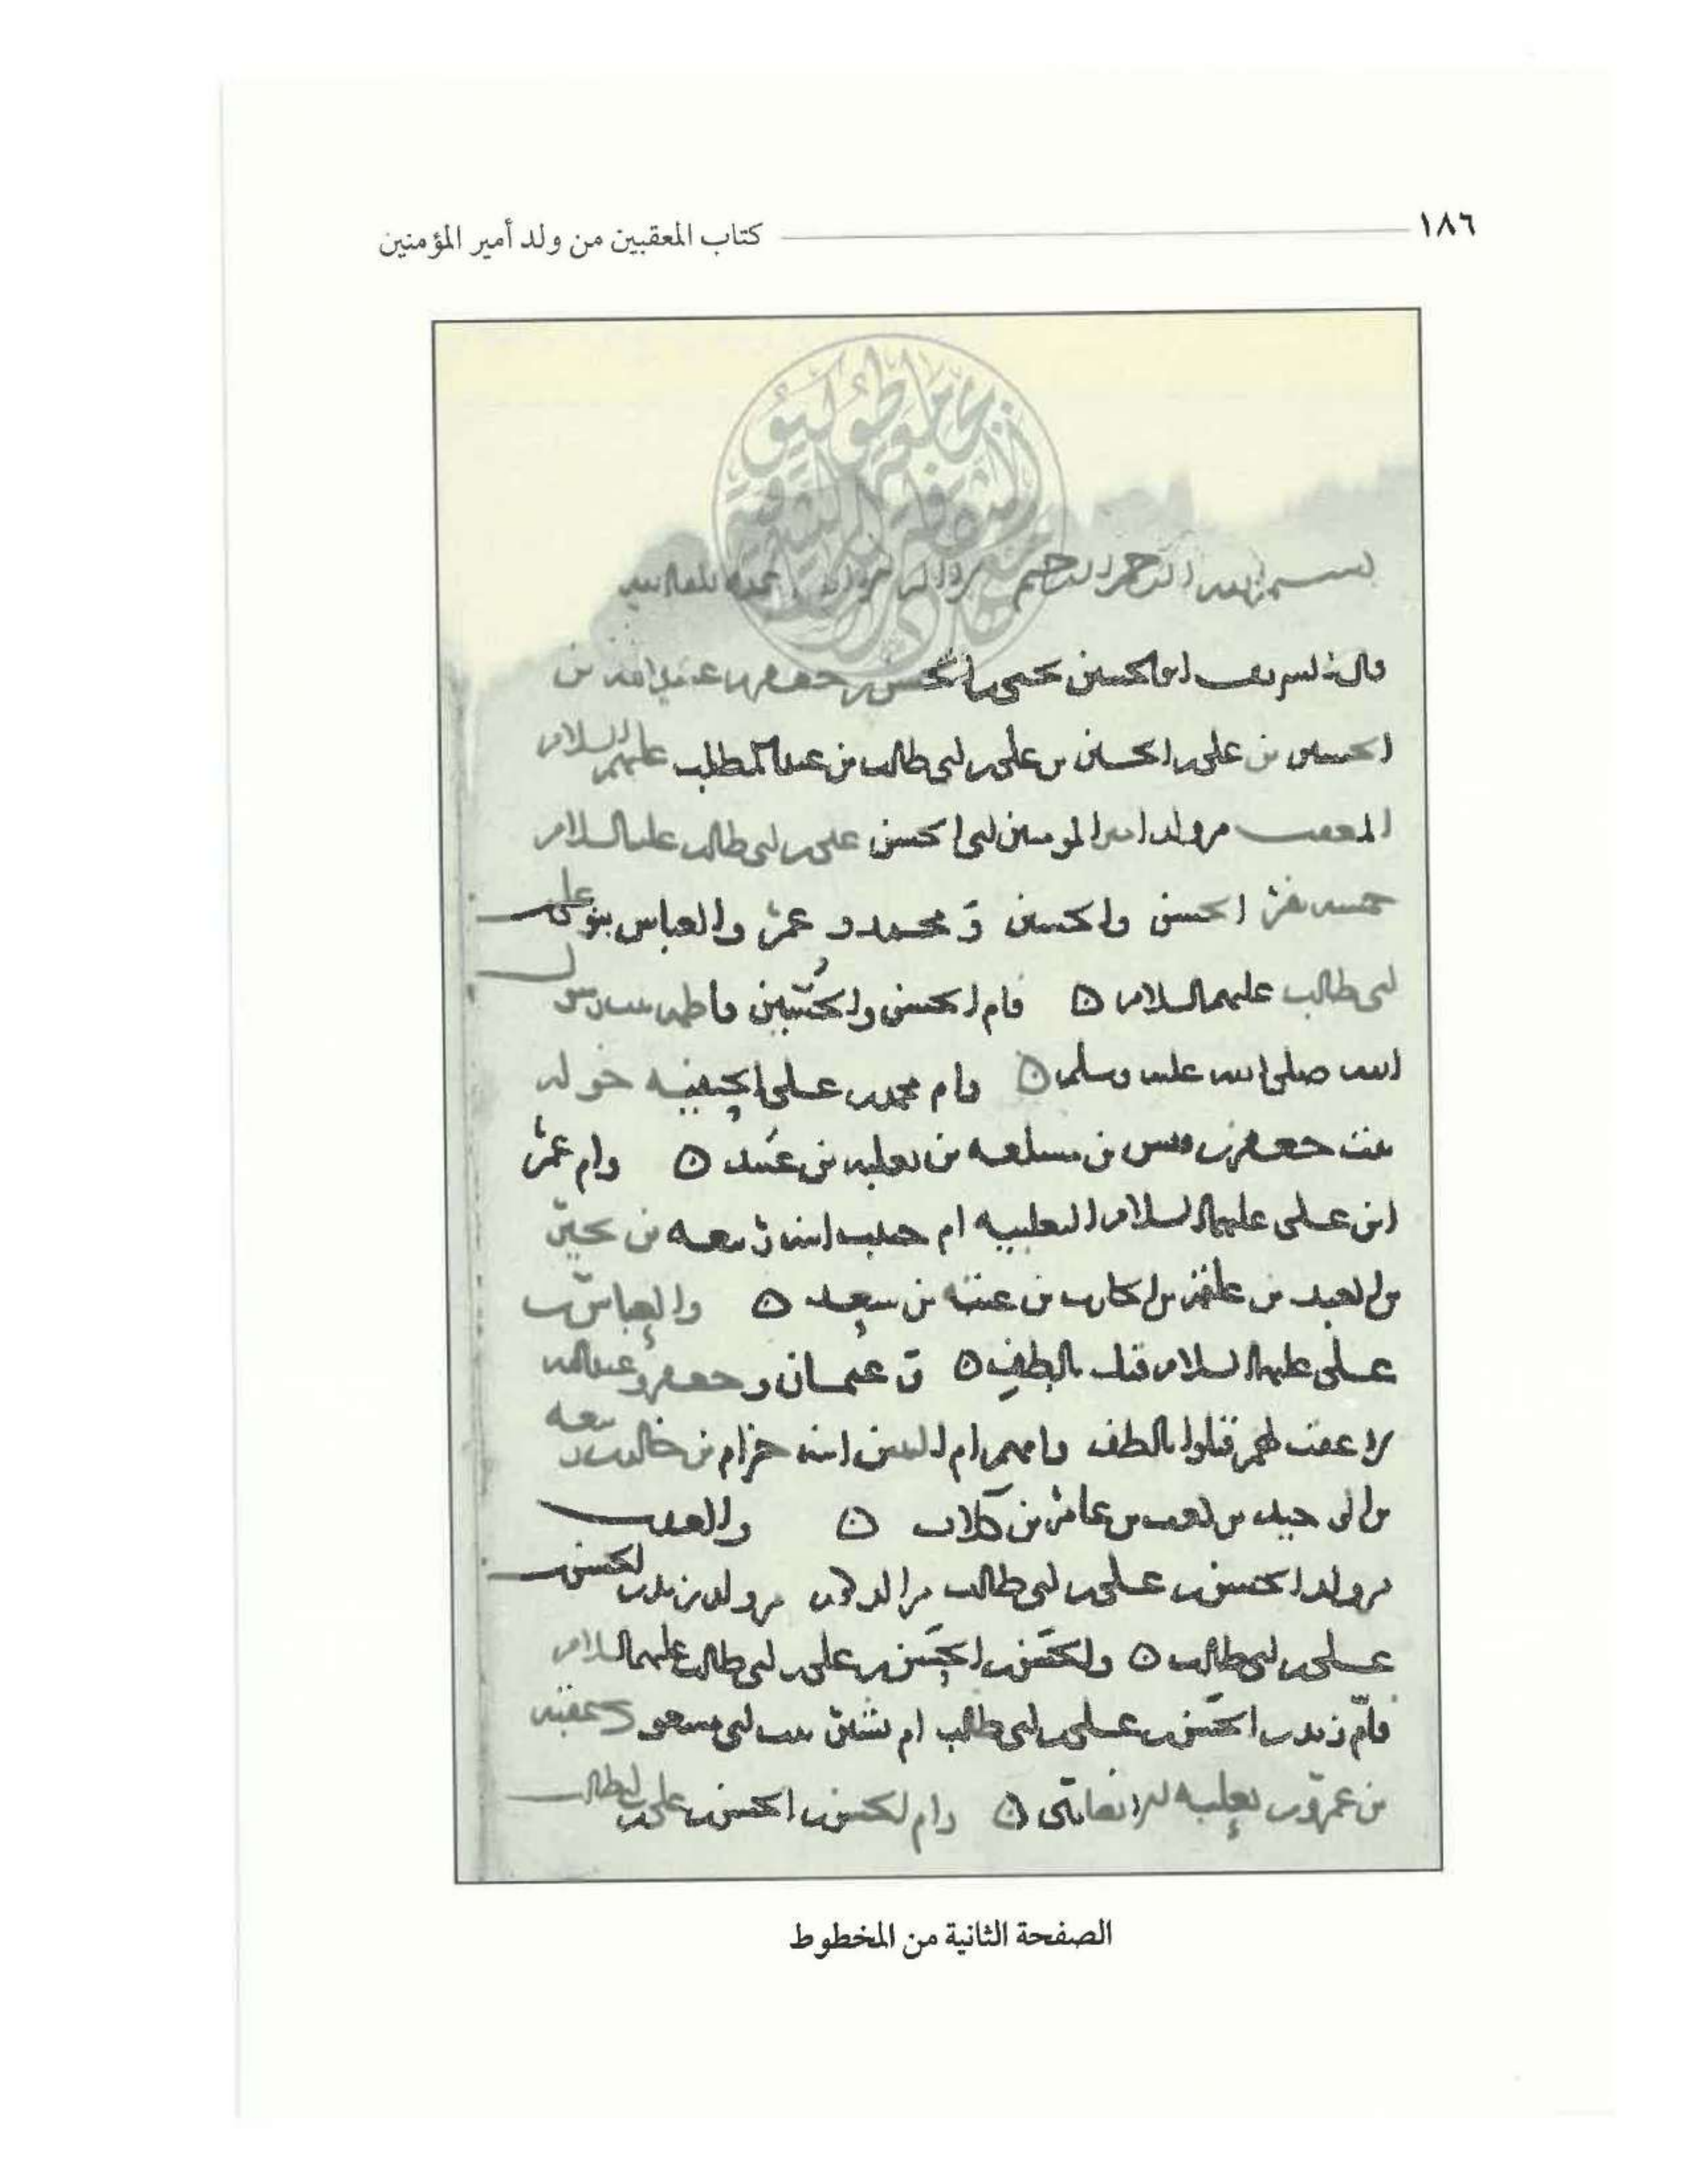 ١٨٦ كتاب المعقبين من ولد أمير المؤمنين
بسم الله الرحمن الرحيم
قال الشريف ابو الحسين يحيى بن الحسن بن جعفر بن عبيد الله بن
الحسين بن علي بن الحسين بن علي بن ابي طالب بن عبد المطلب عليهم السلام
المعقب من ولد امير المومنين ابي الحسن علي بن ابي طالب عليه السلام
خمسة نفر الحسن والحسين و محمد و عمر والعباس بنو علي بن
ابي طالب عليهم السلام ٥ فام الحسن والحسين فاطمة بنت رسول
الله صلى الله عليه وسلم ٥ وام محمد بن علي الحنفية خولة
بنت جعفر بن قيس بن مسلمة بن ثعلبة بن عبيد ٥ وام عمر
ابن علي عليهما السلام الثعلبية ام حبيب ابنة ربيعة بن بجير
بن العبد بن علقمة بن الحارث بن عتبة بن سعيد ٥ والعباس بن
علي عليهما السلام قتل بالطف ٥ و عثمان و جعفر و عبد الله
لا عقب لهم قتلوا بالطف وامهم ام البنين ابنة حزام بن خالد بن ربيعة
بن الوحيد بن كعب بن عامر بن كلاب ٥ والعدد
من ولد الحسن بن علي بن ابي طالب من ولد زيد بن الحسن بن
علي بن ابي طالب ٥ والحسن بن الحسن بن علي بن ابي طالب عليهم السلام
فام زيد بن الحسن بن علي بن ابي طالب ام بشر بنت ابي مسعود عقبة
بن عمرو بن ثعلبة الانصاري ٥ وام الحسن بن الحسن بن علي بن ابي طالب
الصفحة الثانية من المخطوط